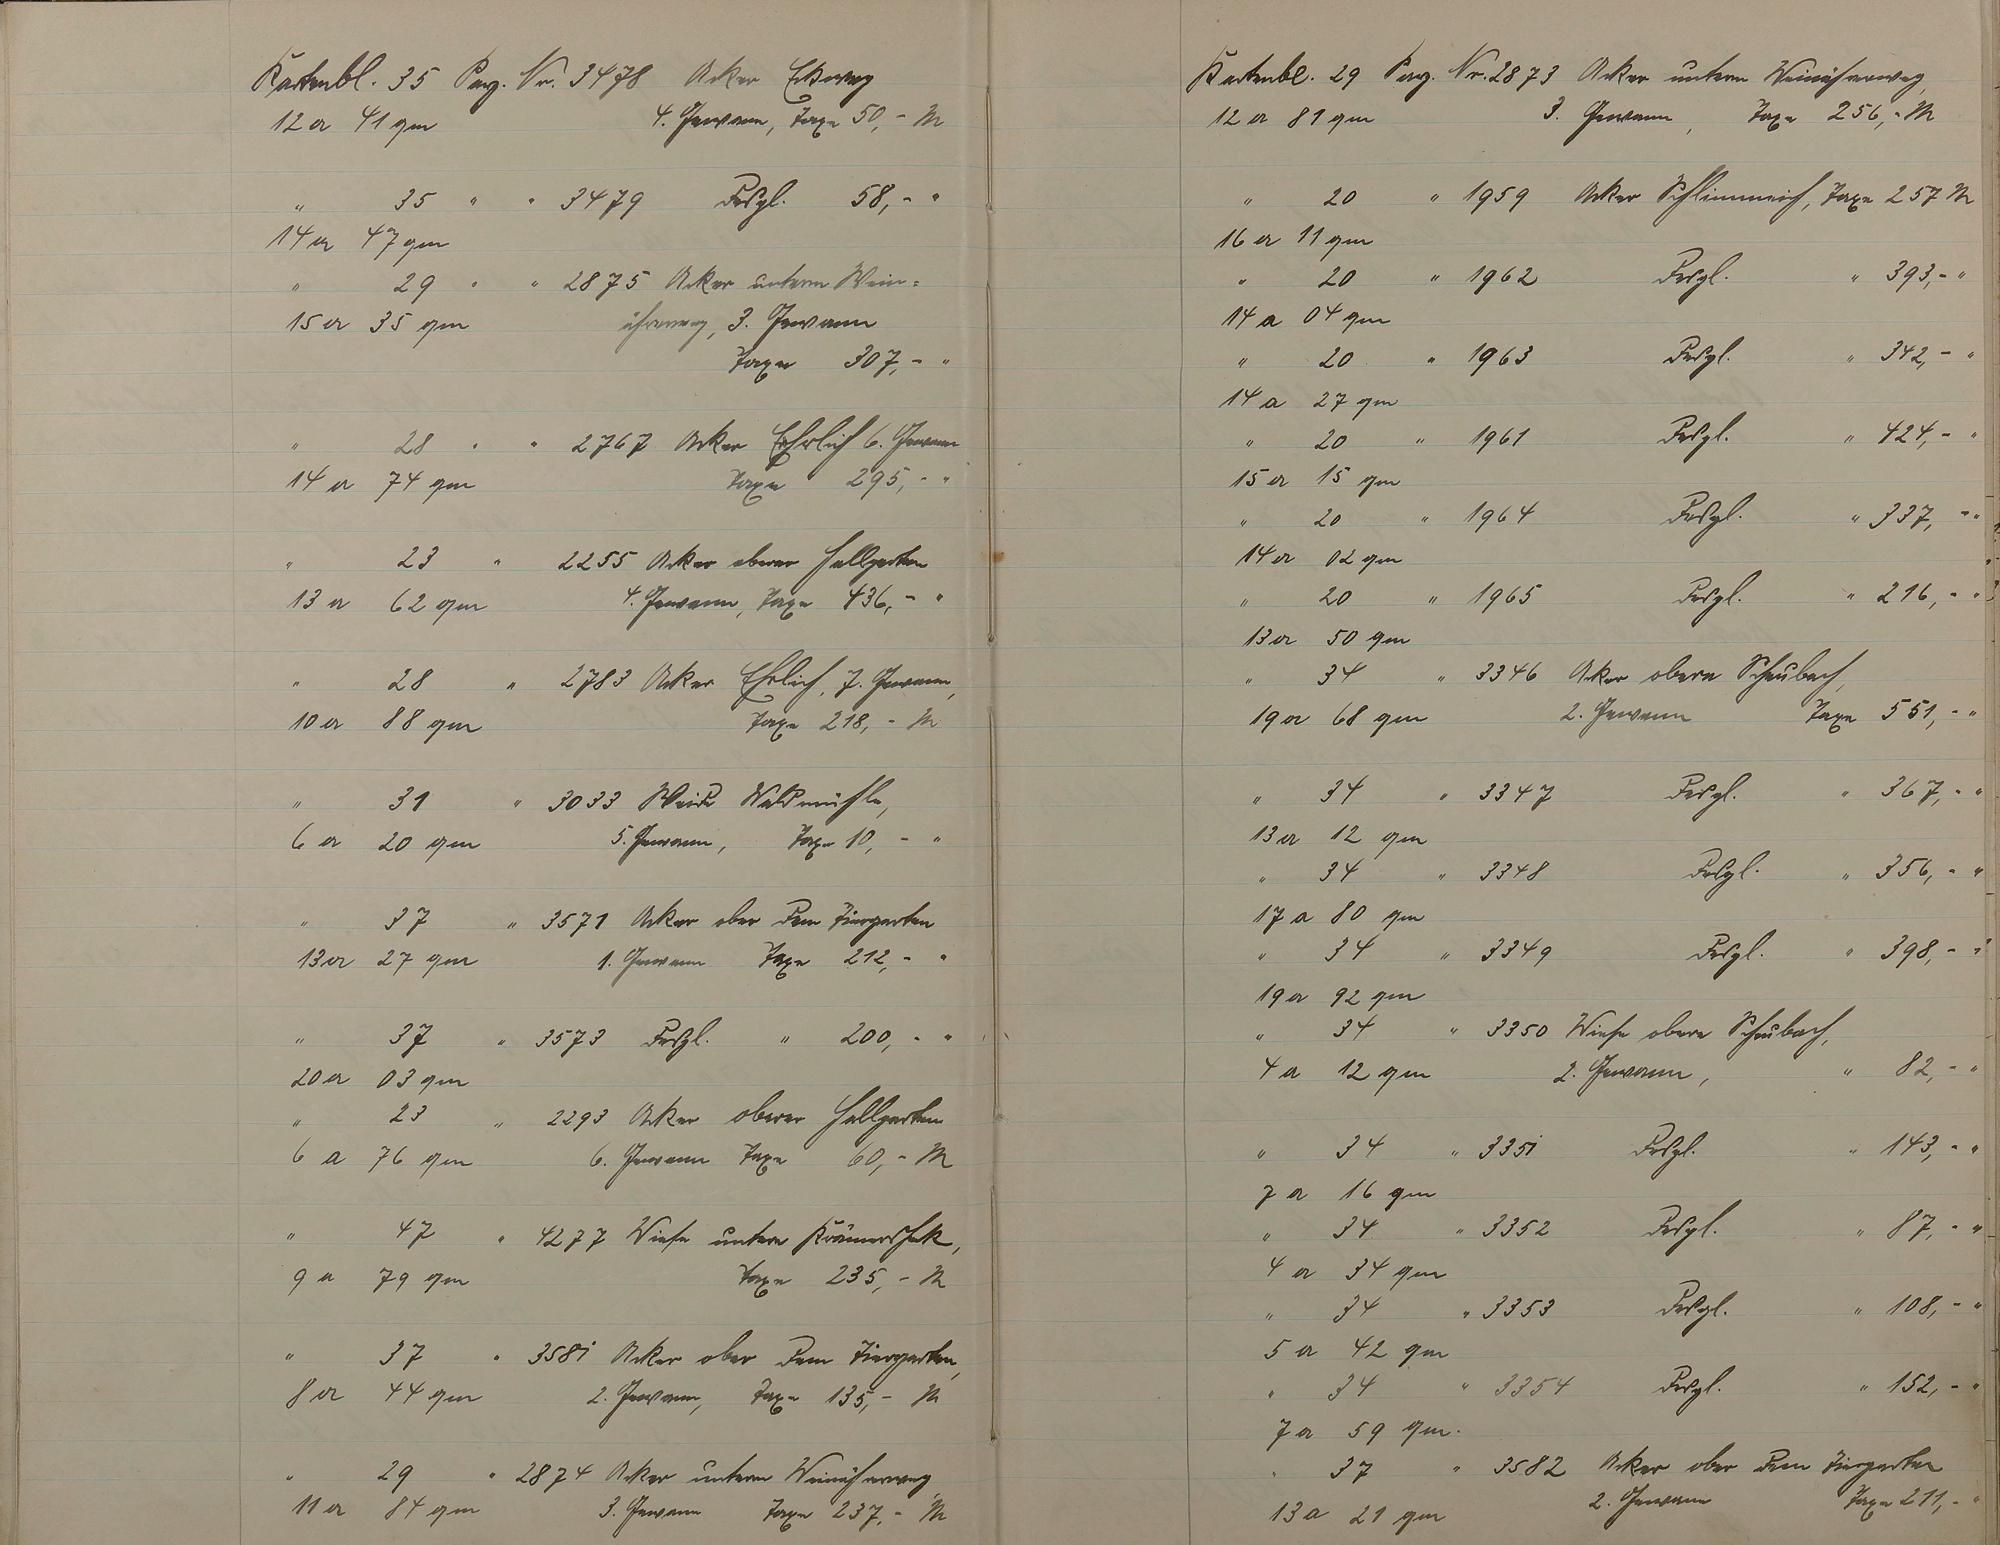 Kartenbl. 35 Parz. Nr. 3478 Acker Eckweg
12 a 41 qm 4. Gewann, Taxe 50,- M
" 35 " " 3479 Desgl. 58,- "
14 a 47 qm
" 29 " " 2875 Acker unterm Wein=
15 a 35 qm ährerweg, 3. Gewann
Taxe 307,- "
" 28 " " 2767 Acker Ehrlich 6. Gewann
14 a 74 qm Taxe 295,- "
" 23 " 2255 Acker oberer Hellgarten
13 a 62 qm 4. Gewann, Taxe 436,- "
" 28 " 2783 Acker Ehrlich, 7. Gewann,
10 a 88 qm Taxe 218,- M
" 31 " 3033 Weide Waldmühle,
6 a 20 qm 5. Gewann, Taxe 10,- "
" 37 " 3571 Acker ober dem Tiergarten
13 a 27 qm 1. Gewann Taxe 212,- "
" 37 " 3573 Desgl. " 200,- "
20 a 03 qm
" 23 " 2293 Acker oberer Hellgarten
6 a 76 qm 6. Gewann Taxe 60,- M
" 47 " 4277 Wiese untere
9 a 79 qm Taxe 235,- M
" 37 " 3581 Acker ober dem Tiergarten,
8 a 44 qm 2. Gewann, Taxe 135,- M
" 29 " 2874 Acker unterm Weinährerweg
11 a 84 qm 3. Gewann Taxe 237,- M
Kartenbl. 29 Parz. Nr. 2873 Acker unterm Weinährerweg,
12 a 81 qm 3. Gewann, Taxe 256,- M
" 20 " 1959 Acker Schlimmeich, Taxe 257 M
16 a 11 qm
" 20 " 1962 Desgl. " 393,- "
14 a 04 qm
" 20 " 1963 Desgl. " 342,- "
14 a 27 qm
" 20 " 1961 Desgl. " 424,- "
15 a 15 qm
" 20 " 1964 Desgl. " 337,- "
14 a 02 qm
" 20 " 1965 Desgl. " 216,- "
13 a 50 qm
" 34 " 3346 Acker obere Scheubach,
19 a 68 qm 2. Gewann Taxe 551,- "
" 34 " 3347 Desgl. " 367,- "
13 a 12 qm
" 34 " 3348 Desgl. " 356,- "
17 a 80 qm
" 34 " 3349 Desgl. " 398,- "
19 a 92 qm
" 34 " 3350 Wiese obere Scheubach,
4 a 12 qm 2. Gewann, " 82,- "
" 34 " 3351 Desgl. " 143,- "
7 a 16 qm
" 34 " 3352 Desgl. " 87,- "
4 a 34 qm
" 34 " 3353 Desgl. " 108,- "
5 a 42 qm
" 34 " 3354 Desgl. " 152,- "
7 a 59 qm.
" 37 " 3582 Acker ober dem Tiergarten
13 a 21 qm 2. Gewann Taxe 211,- "